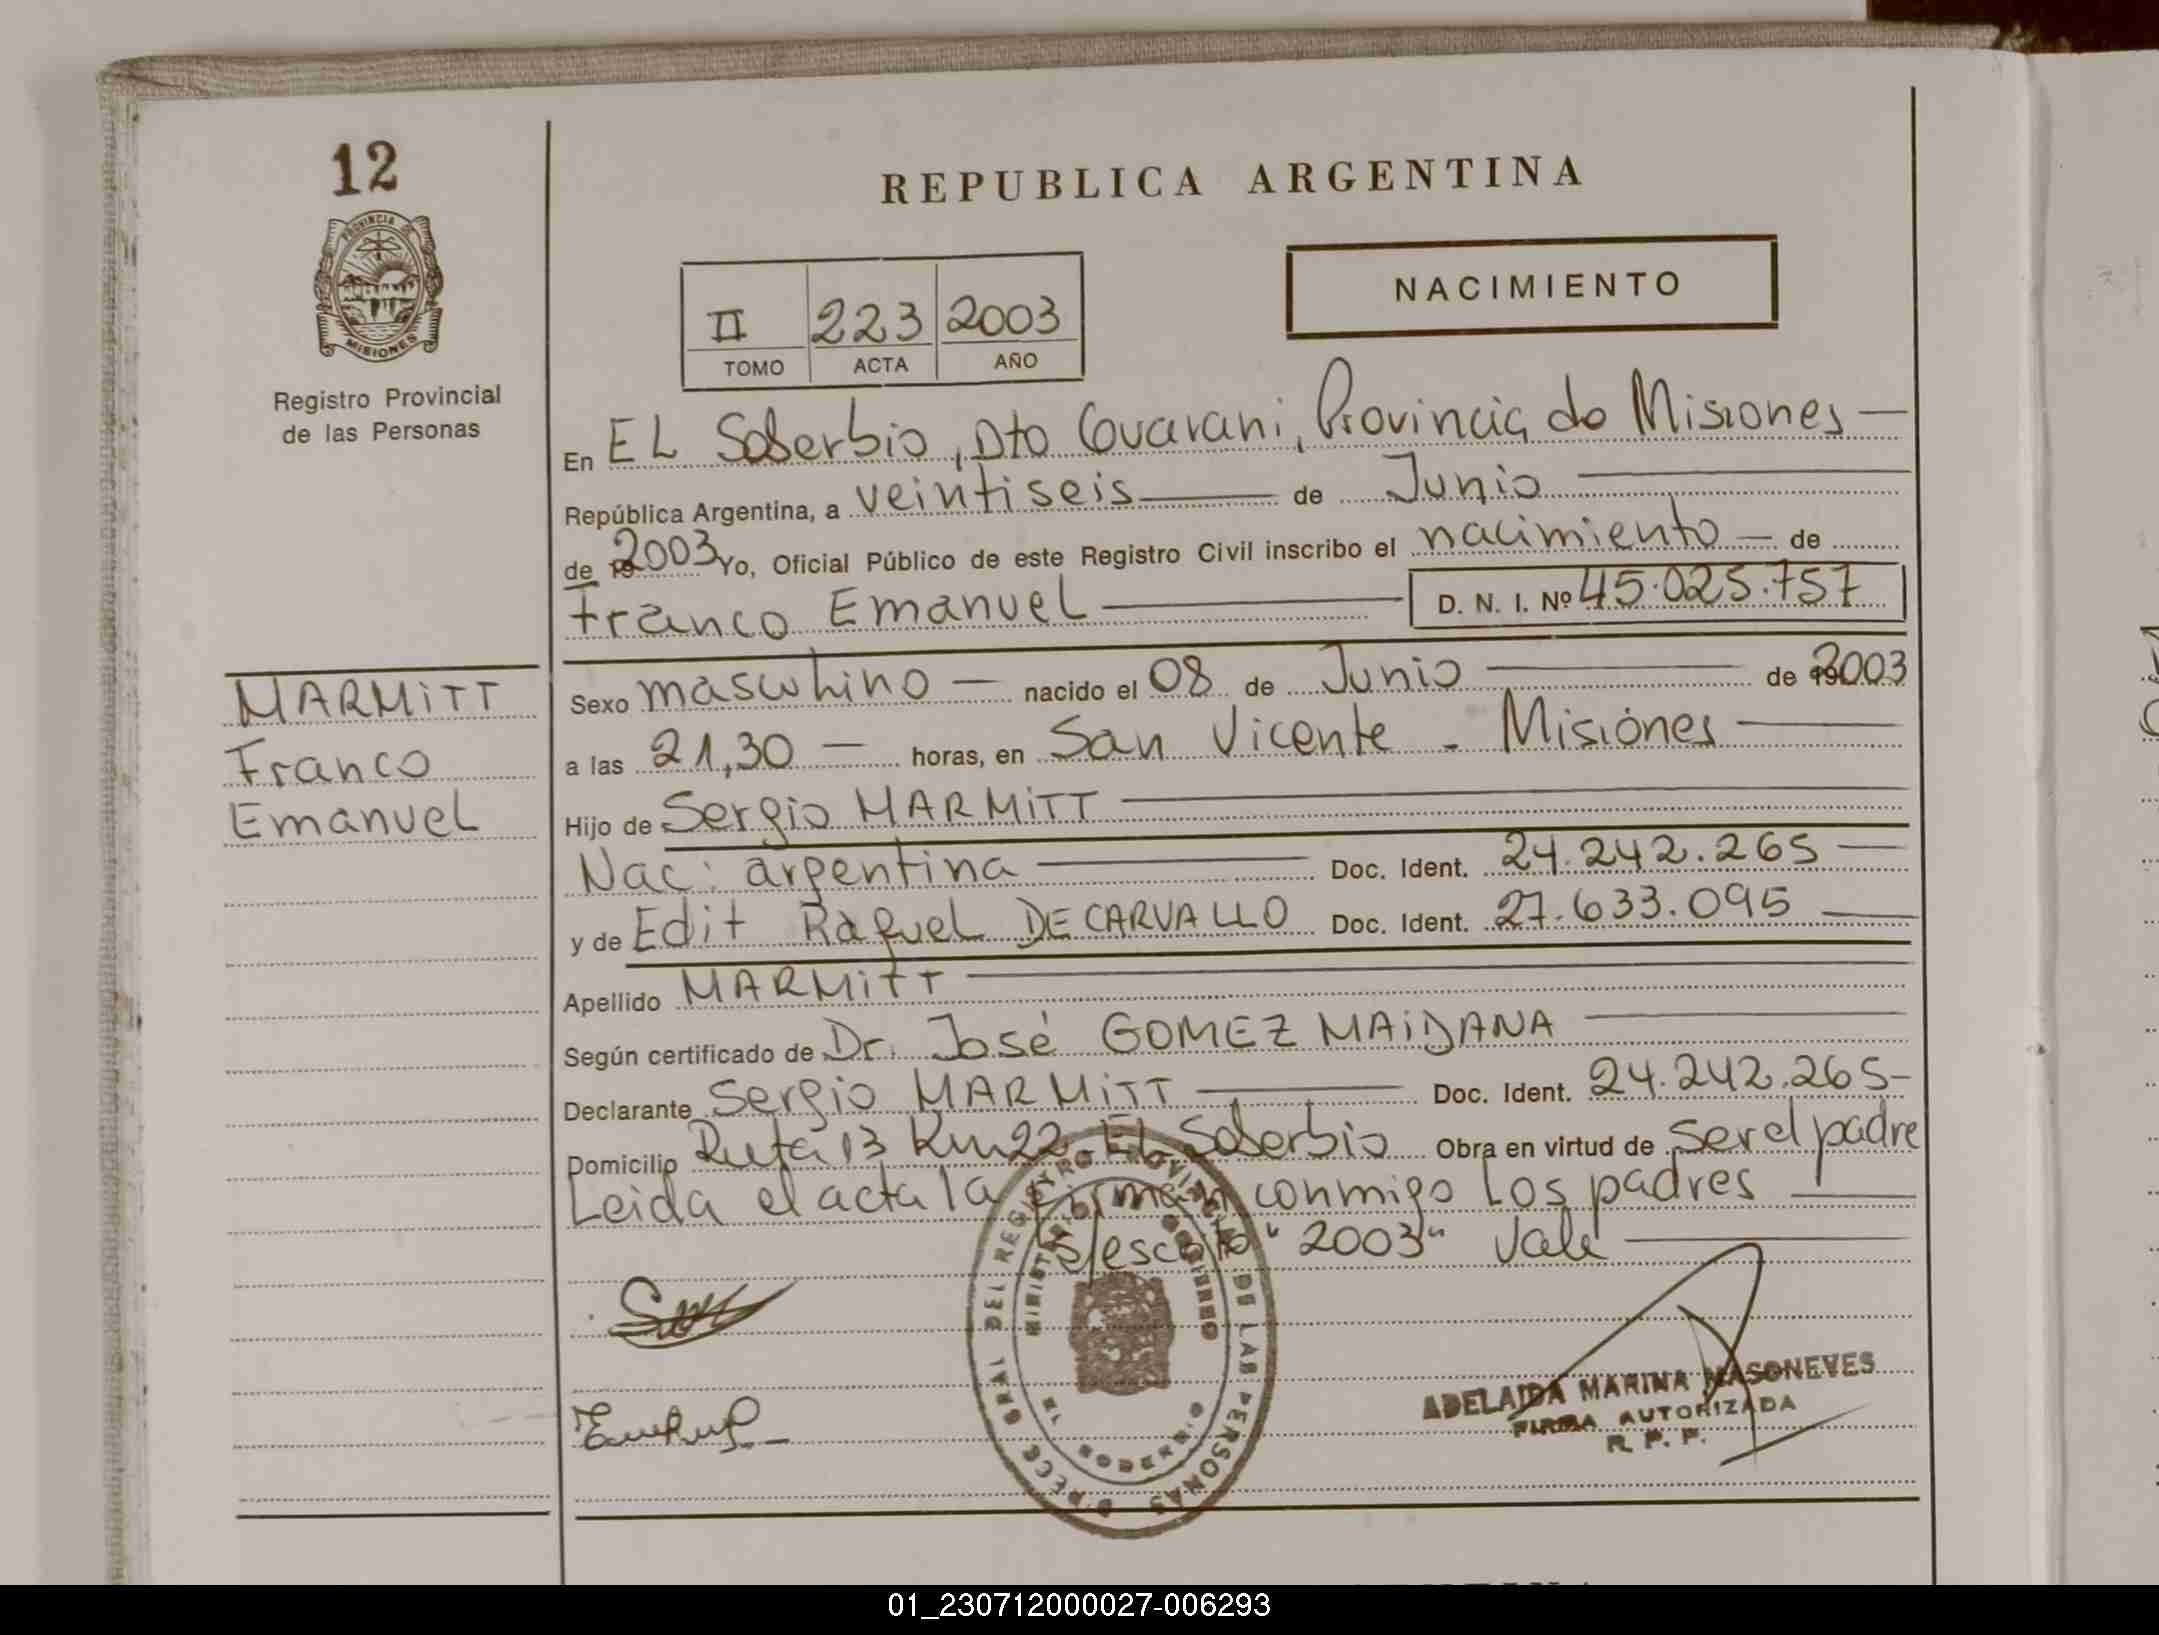 12
PROVINCIA DE
MISIONES
Registro Provincial
de las Personas
MARMITT
Franco
Emanuel
REPUBLICA ARGENTINA
II 223 2003
TOMO ACTA AÑO
NACIMIENTO
En EL Soberbio, Dto Guarani, Provincia de Misiones
República Argentina, a veintiseis de Junio
de 2003 Yo, Oficial Público de este Registro Civil inscribo el nacimiento de
Franco Emanuel D. N. I. Nº 45.025.757
Sexo masculino nacido el 08 de Junio de 2003
a las 21,30 horas, en San Vicente - Misiones
Hijo de Sergio MARMITT
Nac: argentina Doc. Ident. 24.242.265
y de Edit Raquel DE CARVALLO Doc. Ident. 27.633.095
Apellido MARMITT
Según certificado de Dr. José GOMEZ MAIDANA
Declarante Sergio MARMITT Doc. Ident. 24.242.265
Domicilio Ruta 13 Km 22 El Soberbio Obra en virtud de ser el padre
Leida el acta la firman conmigo Los padres
S/escrito "2003" Vale
DEL REGISTRO PROVINCIAL DE LAS PERSONAS
MINISTERIO DE GOBIERNO
ADELAIDA MARINA MASONEVES
FIRMA AUTORIZADA
R. P. P.
01_230712000027-006293